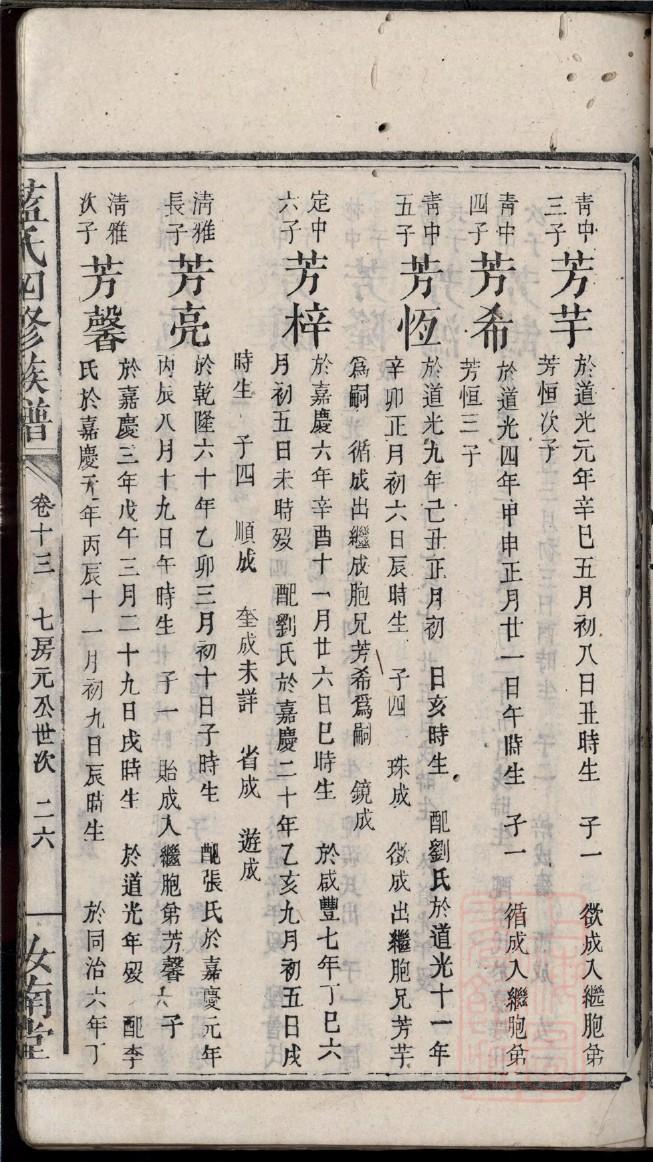 青中
三子
芳芋
於道光元年辛巳五月初八日丑時生　子一　徵成入繼胞弟
芳恒次子
青中
四子
芳希
於道光四年甲申正月廿一日午時生　子一　循成入繼胞弟
芳恒三子
青中
五子
芳恆
於道光九年己丑正月初　日亥時生　配劉氏於道光十一年
辛卯正月初六日辰時生　子四　珠成　徵成出繼胞兄芳芋
爲嗣　循成出繼成胞兄芳希爲嗣　鏡成
定中
六子
芳梓
於嘉慶六年辛酉十一月廿六日巳時生　於咸豐七年丁巳六
月初五日未時歿　配劉氏於嘉慶二十年乙亥九月初五日戌
時生　子四　順成　奎成未詳　省成　遊成
清雅
長子
芳亮
於乾隆六十年乙卯三月初十日子時生　配張氏於嘉慶元年
丙辰八月十九日午時生　子一　貽成入繼胞弟芳馨六子
清雅
次子
芳馨
於嘉慶三年戊午三月二十九日戌時生　於道光年歿　配李
氏於嘉慶元年丙辰十一月初九日辰時生　於同治六年丁
藍氏四修族譜
卷十三　七房元公世次　二六
汝南堂